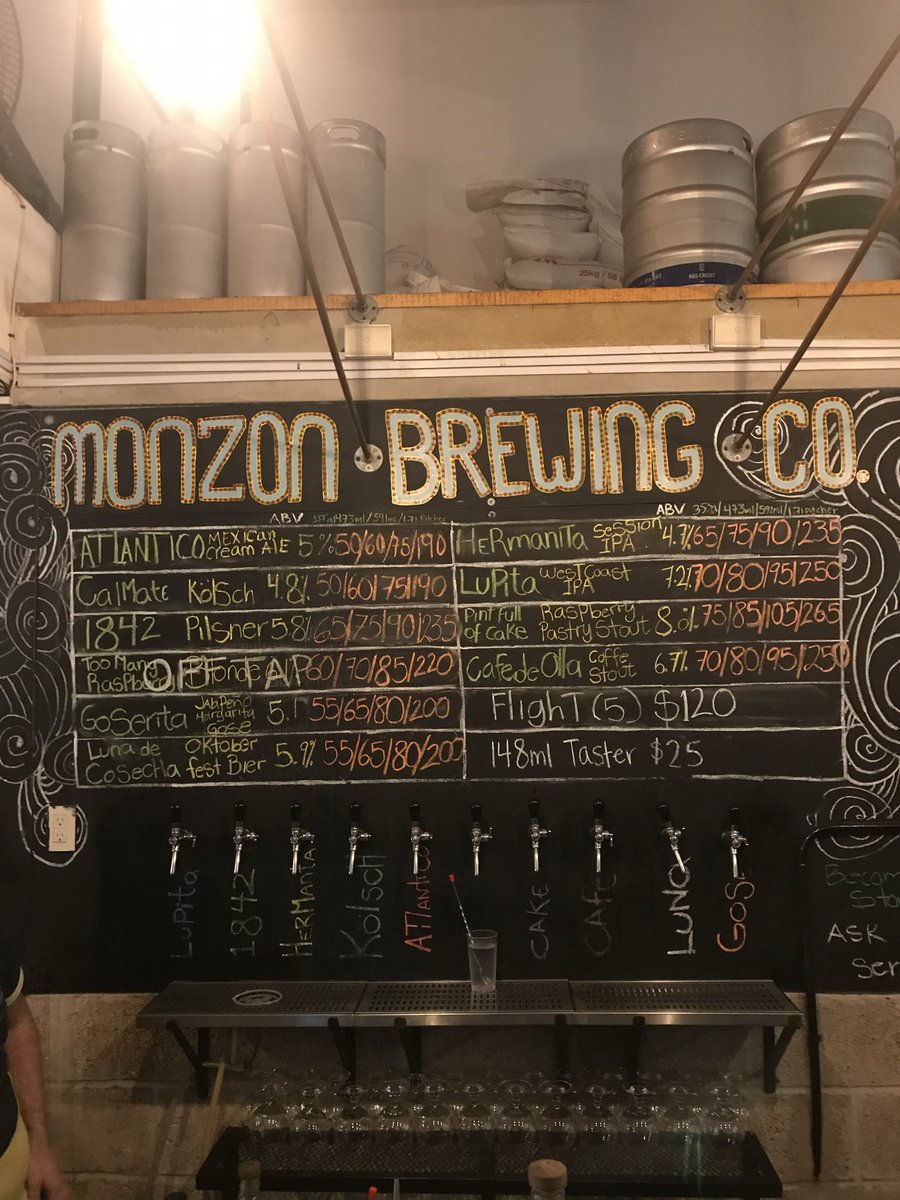 25kg/55
MONZON BREWING CO.
ABV 355ml/473ml/591ml/1.7l Pitcher
ATlANTICO MEXICAN Cream Ale 5% 50/60/75/190
CalMate Kölsch 4.8% 50/60/75/190
1842 Pilsner 5.8% 65/75/90/235
Too Many Raspberry Blonde 60/70/85/220
OFF TAP
GoSerita Jalapeno Margarita Gose 5.1 55/65/80/200
Luna de Cosecha Oktober fest Bier 5.9% 55/65/80/200
ABV 355ml/473ml/591ml/1.7l Pitcher
HeRmaniTa SeSSion IPA 4.7% 65/75/90/235
LuPita West Coast IPA 7.2% 70/80/95/250
Pint full of cake Raspberry Pastry Stout 8.0% 75/85/105/265
Cafe de Olla Coffe Stout 6.7% 70/80/95/250
FlighT (5) $120
148ml Taster $25
LuPita
1842
HerManita
Kölsch
ATlantico
CAKE
CAFE
LUNA
GoS.
Becom
Sto
ASK
Ser